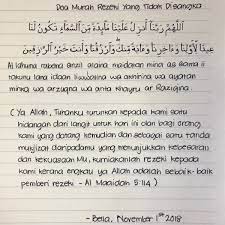 Doa Murah Rezeki Yang Tidak Disangka
اللَّهُمَّ رَبَّنَا أَنزِلْ عَلَيْنَا مَائِدَةً مِّنَ السَّمَاءِ تَكُونُ لَنَا
عِيدًا لِّأَوَّلِنَا وَآخِرِنَا وَآيَةً مِّنكَ وَارْزُقْنَا وَأَنتَ خَيْرُ الرَّازِقِينَ
Allahuma rabbana anzil alaina maidatan minas as sama i
takunu lana idaan liawwalina wa akhirina wa ayatan
minka wa arzuqna wa anta khayru ar Raziqina.
( Ya Allah, Turunkan kepada kami satu
hidangan dari langit untuk hari ini dan bagi orang
kami yang datang kemudian dan sebagai satu tanda
mukjizat daripadamu yang menunjukkan kebesaran
dan kekuasaan Mu, kurniakanlah rezeki kepada
kami kerana engkau ya Allah adalah sebaik-baik
pemberi rezeki - Al Maaidah 5:114 )
- Bella, November 1st 2018